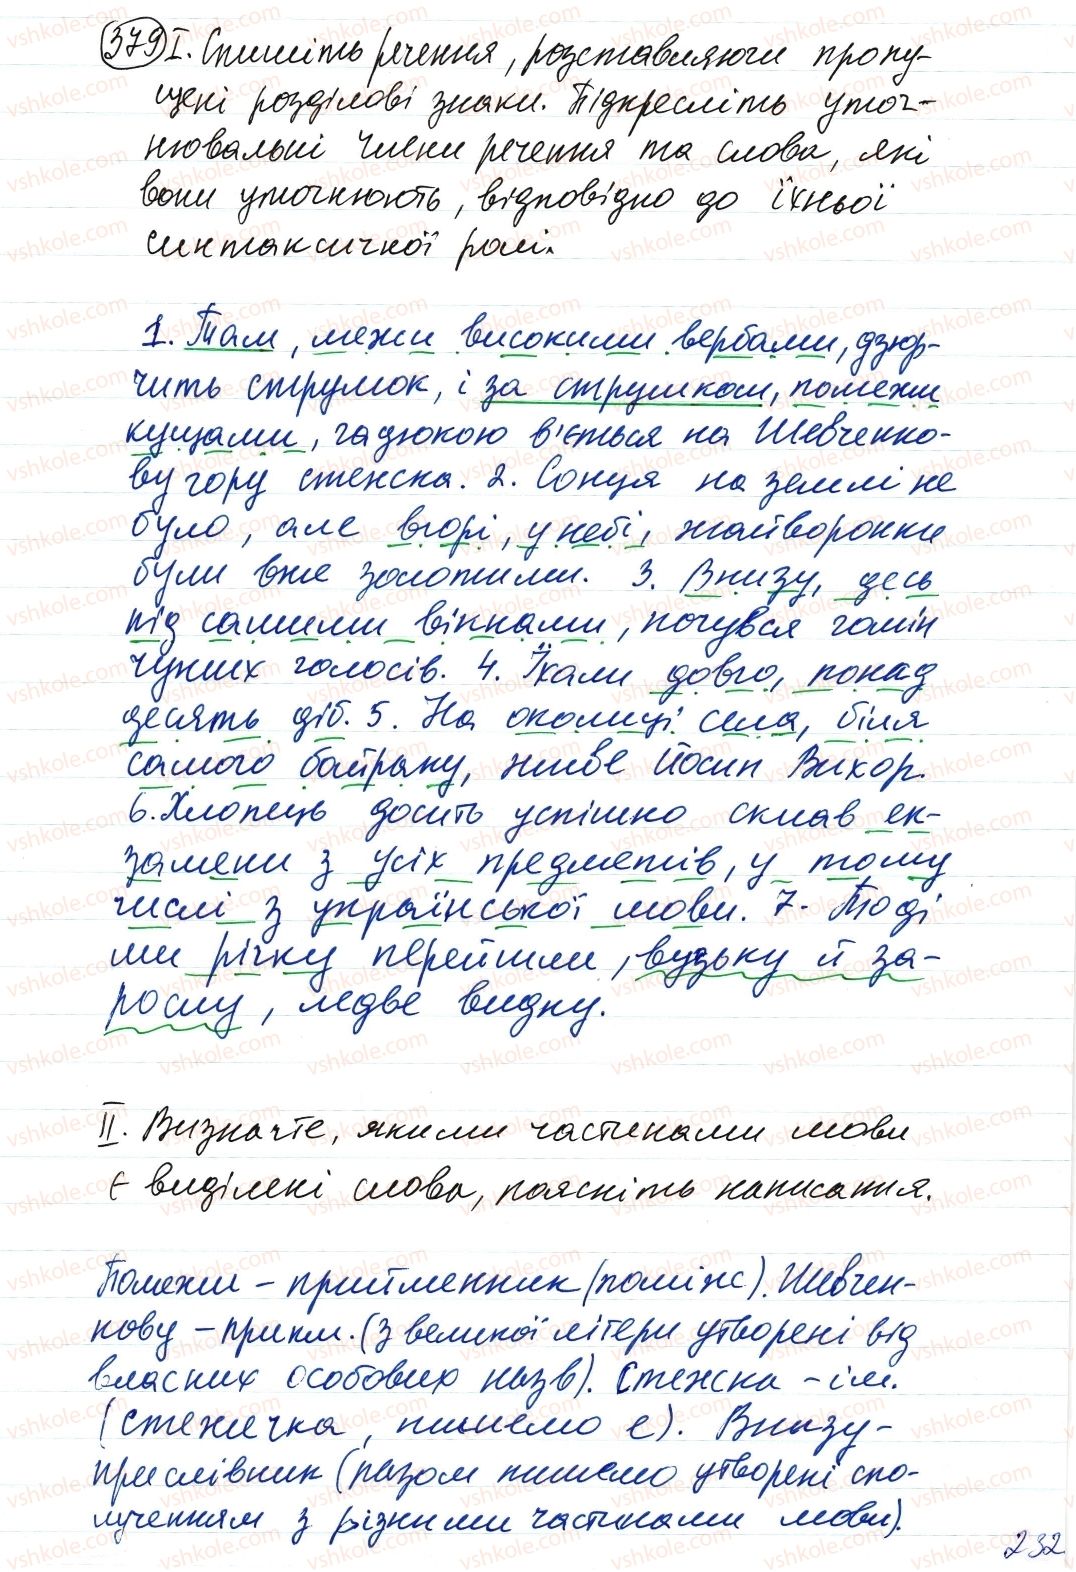 379 I. Спишіть речення, розставляючи пропу-
щені розділові знаки. Підкресліть уточ-
нювальні члени речення та слова, які
вони уточнюють, відповідно до їхньої
синтаксичної ролі.
1. Там, межи високими вербами, дзюр-
чить струмок, і за струмком, помежи
кущами, гадюкою в'ється на Шевченко-
ву гору стежка. 2. Сонця на землі не
було, але вгорі, у небі, жайворонки
були вже золотими. 3. Внизу, десь
під самими вікнами, почувся гомін
чужих голосів. 4. Їхали довго, понад
десять діб. 5. На околиці села, біля
самого байраку, живе Йосип Вихор.
6. Хлопець досить успішно склав ек-
замени з усіх предметів, у тому
числі з української мови. 7. Тоді
ми річку перейшли, вузьку й за-
рослу, ледве видну.
II. Визначте, якими частинами мови
є виділені слова, поясніть написання.
Помежи – прийменник (поміж). Шевчен-
кову – прикм. (з великої літери утворені від
власних особових назв). Стежка – ім.
(стежечка, пишемо е). Внизу –
прислівник (разом пишемо утворені спо-
лученням з різними частинами мови).
232